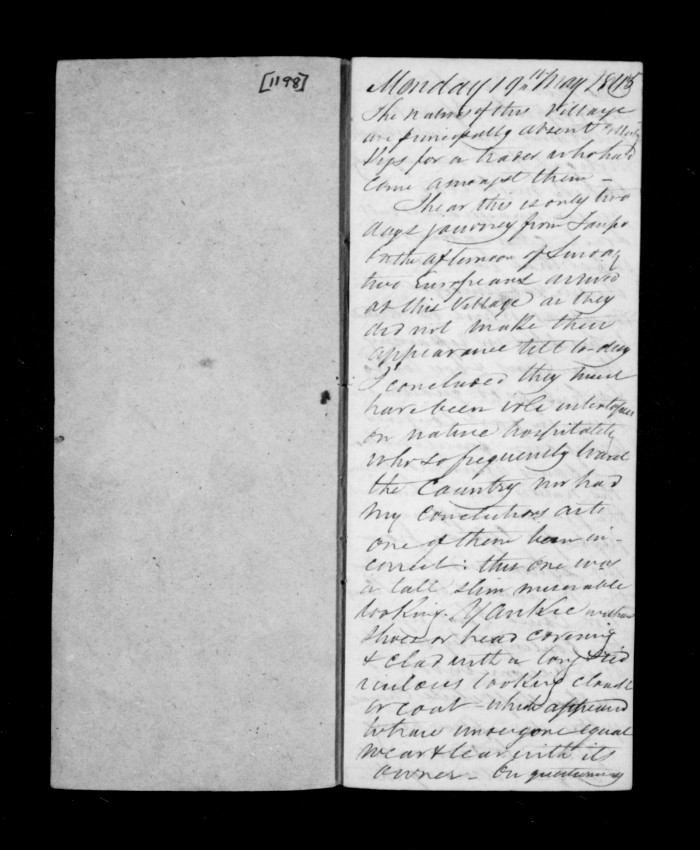 [1198]
Monday 19th May 1845
The natives of this Village
are principally absent
Pigs for a trader who had
come amongst them –
I hear this is only two
days journey from Taupo
On the afternoon of Sunday
two Europeans arrived
at this Village as they
did not make their
appearance till to-day
I concluded they must
have been idle interlopers
on native hospitality
who so frequently travel
the Country nor had
my conclusions as to
one of them been in-
correct: this one was
a tall slim miserable
looking Yankie without
shoes or head covering
& clad with a long & rid
iculous looking cloak
or coat which appeared
to have undergone equal
wear & tear with its
owner – On questioning